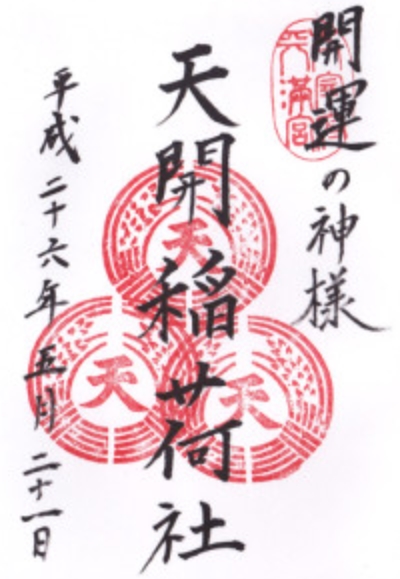 開運の神様
天開稲荷社
平成二十六年五月二十一日
天
天
天